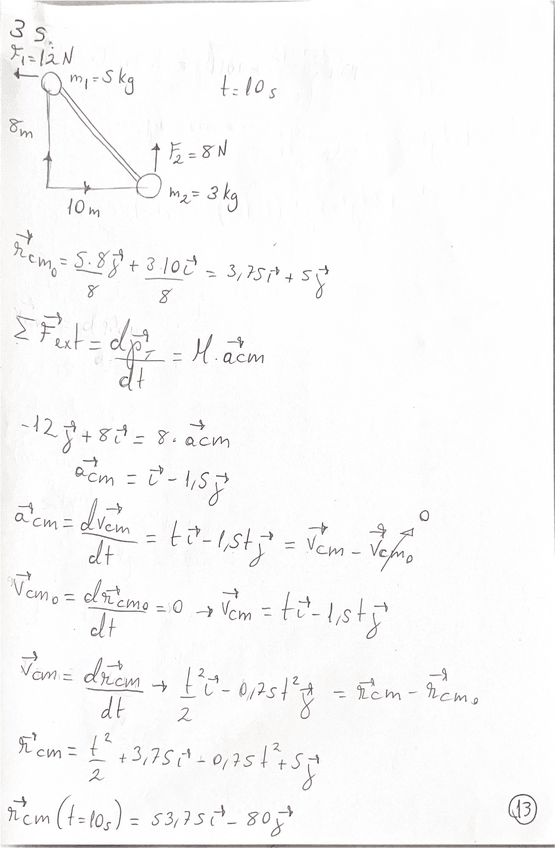 3 S.
F₁=12N
m₁=5kg
t=10s
8m
F₂=8N
m₂=3kg
10m
r⃗cm₀ = 5.8j⃗/8 + 3.10i⃗/8 = 3,75i⃗ + 5j⃗
ΣF⃗ext = dp⃗T/dt = M.a⃗cm
-12j⃗ + 8i⃗ = 8.a⃗cm
a⃗cm = i⃗ - 1,5j⃗
a⃗cm = dv⃗cm/dt = ti⃗ - 1,5tj⃗ = v⃗cm - v⃗cm₀ 0
v⃗cm₀ = dr⃗cm₀/dt = 0 → v⃗cm = ti⃗ - 1,5tj⃗
v⃗cm = dr⃗cm/dt → t²/2 i⃗ - 0,75t²j⃗ = r⃗cm - r⃗cm₀
r⃗cm = t²/2 + 3,75i⃗ - 0,75t² + 5j⃗
r⃗cm(t=10s) = 53,75i⃗ - 80j⃗
13